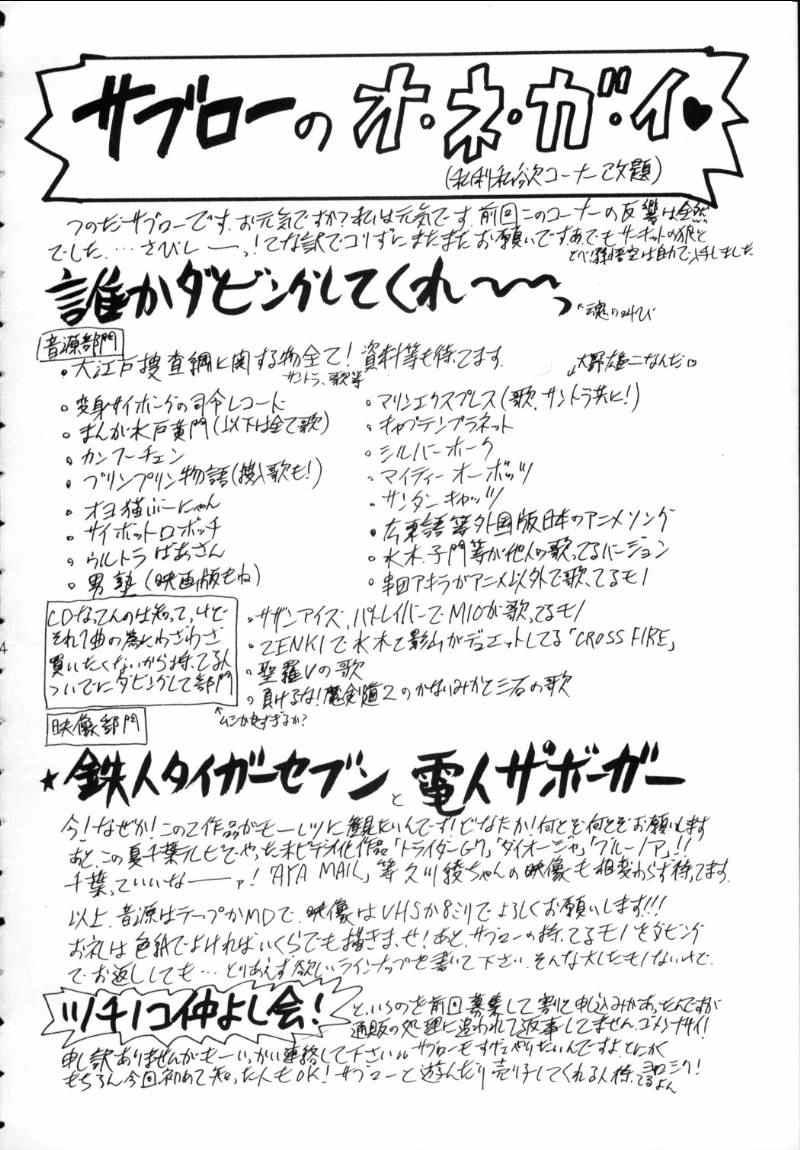 サブローの オ・ネ・ガ・イ♥
(私利私欲コーナー改題)
つのだサブローです。お元気ですか?私は元気です。前回このコーナーの反響は全然
でした…さびしーーっ!てな訳でコリずにまたまたお願いです。あ、でもサーキットの狼と
とべ!孫悟空は自力で入手しました。
誰かダビングしてくれ〜〜っ
↖魂の叫び
音源部門
・大江戸捜査網に関する物全て!資料等も待ってます。
サントラ、歌等
大野雄二なんだ
・変身サイボーグの司令レコード
・まんが水戸黄門(以下は全て歌)
・カンフーチェン
・プリンプリン物語(挿入歌も!)
・オヨ猫ぶーにゃん
・サイボットロボッチ
・ウルトラばあさん
・男塾(映画版もね)
・マリンエクスプレス(歌、サントラ共に!)
・キャプテンプラネット
・シルバーホーク
・マイティーオーボッツ
・サンダーキャッツ
・広東語等外国版日本のアニメソング
・水木、子門等が他人の歌ってるバージョン
・串田アキラがアニメ以外で歌ってるモノ
CDなってんのは知ってっけど
それ1曲の為にわざわざ
買いたくないから持ってる人
ついでにダビングして部門
↖ムシが良すぎるか?
・サザンアイズ、パトレイバーでMIOが歌ってるモノ
・ZENKIで水木と影山がデュエットしてる「CROSS FIRE」
・聖羅Vの歌
・負けるな!魔剣道2のかないみかと三石の歌
映像部門
★鉄人タイガーセブンと電人ザボーガー
今!なぜか!この2作品がモーレツに観たいんです!どなたか!何とぞ何とぞお願いします
あと、この夏千葉テレビでやった未ビデオ化作品「トライダーG7」「ダイオージャ」「アクーノア」!!
千葉っていいなーーァ!「AYA MAIL」等久川綾ちゃんの映像も相変わらず待ってます。
以上、音源はテープかMDで、映像はVHSか8ミリでよろしくお願いします!!!
お礼は色紙でよければいくらでも描きまっせ!あと、サブローの持ってるモノをダビング
でお返ししても…とりあえず欲しいラインナップを書いて下さい。そんな大したモノないけど。
ツチノコ仲よし会!
というのを前回募集して割と申込みがあったんですが
通販の処理に追われて返事してません。ゴメンナサイ!
申し訳ありませんがもーいっかい連絡して下さい。サブローもすげェやりたいんですよ。とにかく
もちろん今回初めて知った人もOK!サブローと遊んだり売り子してくれる人待ってるよん ヨロシク!